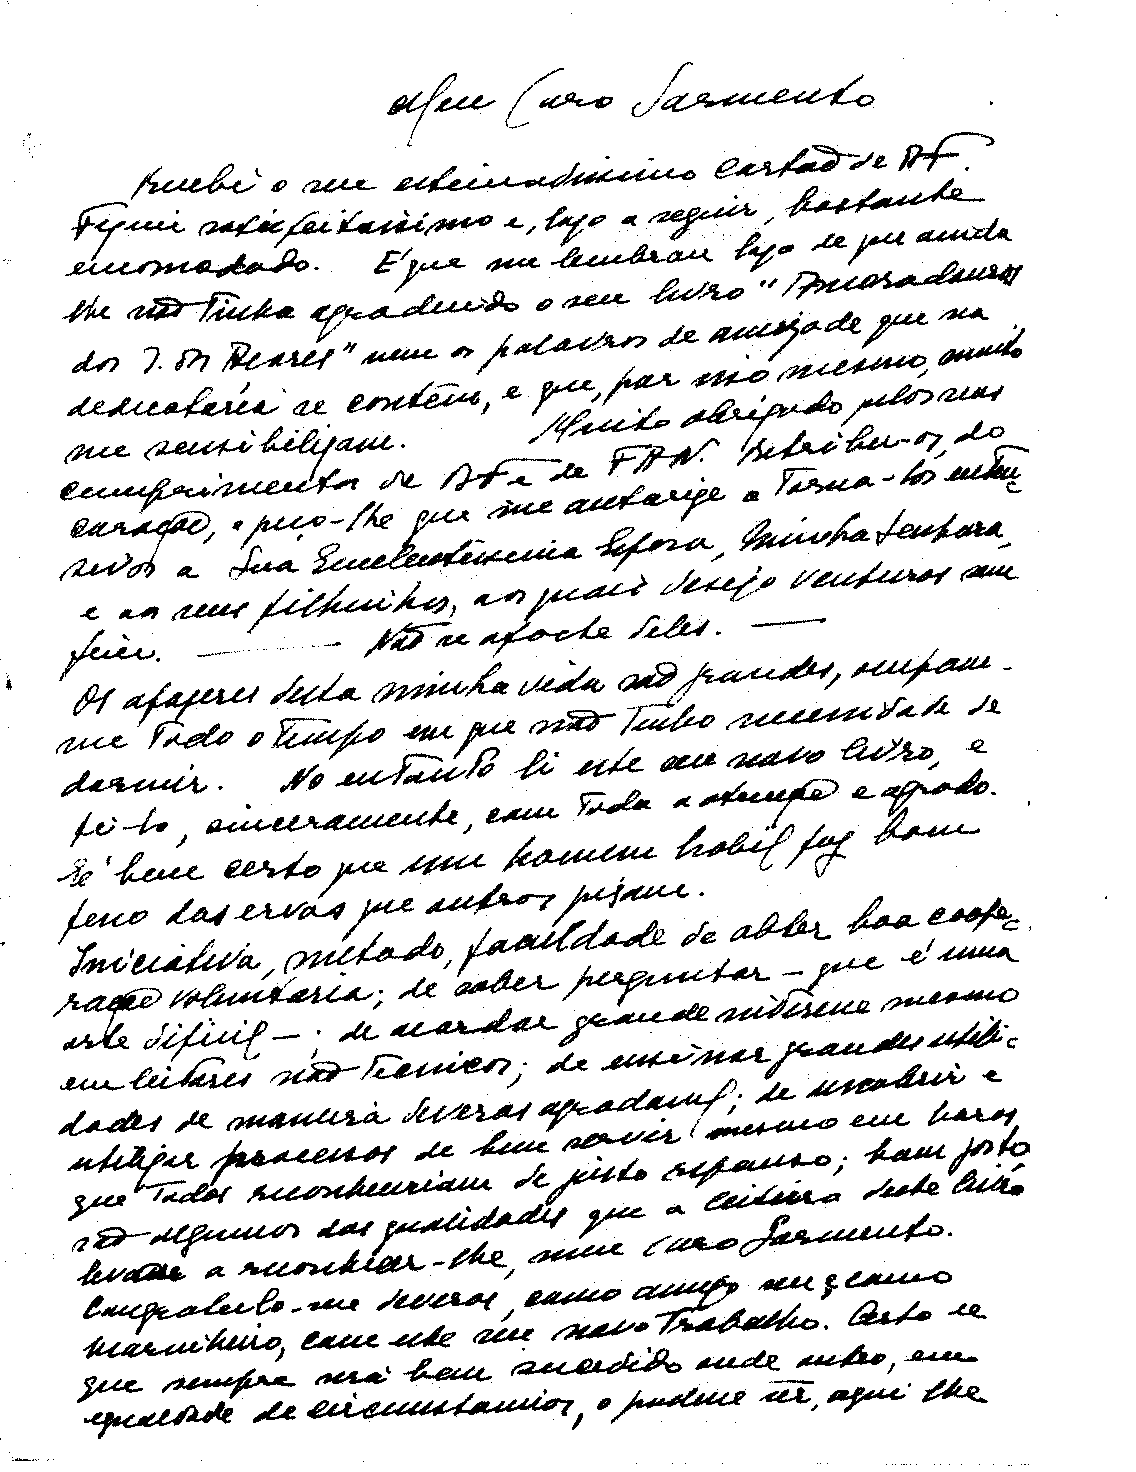 Meu Caro Sarmento
Recebi o seu estimadissimo Cartão de BF.
Fiquei satisfeitissimo e, logo a seguir, bastante
encomodado. É que me lembrou logo de que ainda
lhe não tinha agradecido o seu livro "Ancoradouros
dos Açores" nem as palavras de amizade que na
dedicatória se contêm, e que, por isso mesmo, muito
me sensibilizam. Muito obrigado pelos seus
cumprimentos de BF e de FAN. Retribuo-os, do
coração, e peço-lhe que me autorize a torna-los exten-
sivos a Sua Excelentissima Esposa, Minha Senhora,
e aos seus filhinhos, aos quais desejo venturas sem
fim. — Não se afaste deles. —
Os afazeres desta minha vida são grandes, ocupam-
me todo o tempo em que não tenho necessidade de
dormir. No entanto li este seu novo livro, e
fi-lo, sinceramente, com toda a atenção e agrado.
É bem certo que um homem habil faz bom
feno das ervas que outros pisam.
Iniciativa, método, faculdade de obter boa coope-
ração voluntária; de saber perguntar – que é uma
arte dificil –; de acordar grande interesse mesmo
em leitores não tecnicos; de ensinar grandes utili-
dades de maneira deveras agradavel; de descobrir e
utilizar processos de bem servir mesmo em horas
que todos reconheceriam de justo repouso; bom gosto
são algumas das qualidades que a leitura deste livro
levam a reconhecer-lhe, meu Caro Sarmento.
Congratulo-me deveras, como amigo seu e como
marinheiro, com este seu novo trabalho. Certo de
que sempre será bem sucedido onde outro, em
igualdade de circumstancias, o pudesse ser, aqui lhe